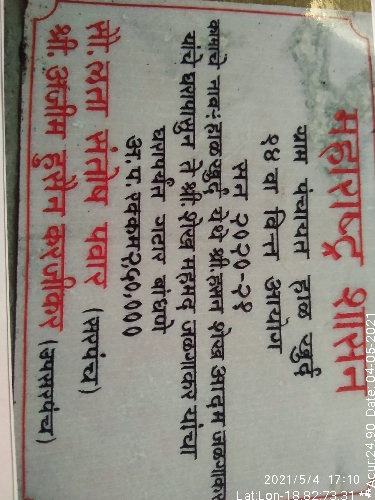 महाराष्ट्र शासन
ग्राम पंचायत हाळ खुर्द
१४ वा वित्त आयोग
सन २०२०-२१
कामाचे नाव:हाळ खुर्द येथे श्री.हसन शेख आदम जळगाकर
यांचे घरापासुन ते श्री शेख महमद जळगाकर यांच्या
घरापर्यंत गटार बांधणे
अ.प.रक्कम२,५०,०००
सौ.लता संतोष पवार (सरपंच)
श्री.अजीम हुसेन करजीकर (उपसरपंच)
2021/5/4 17:10
Lat:Lon-18.82:73.31
**Acur:24.90 Date: 04-05-2021